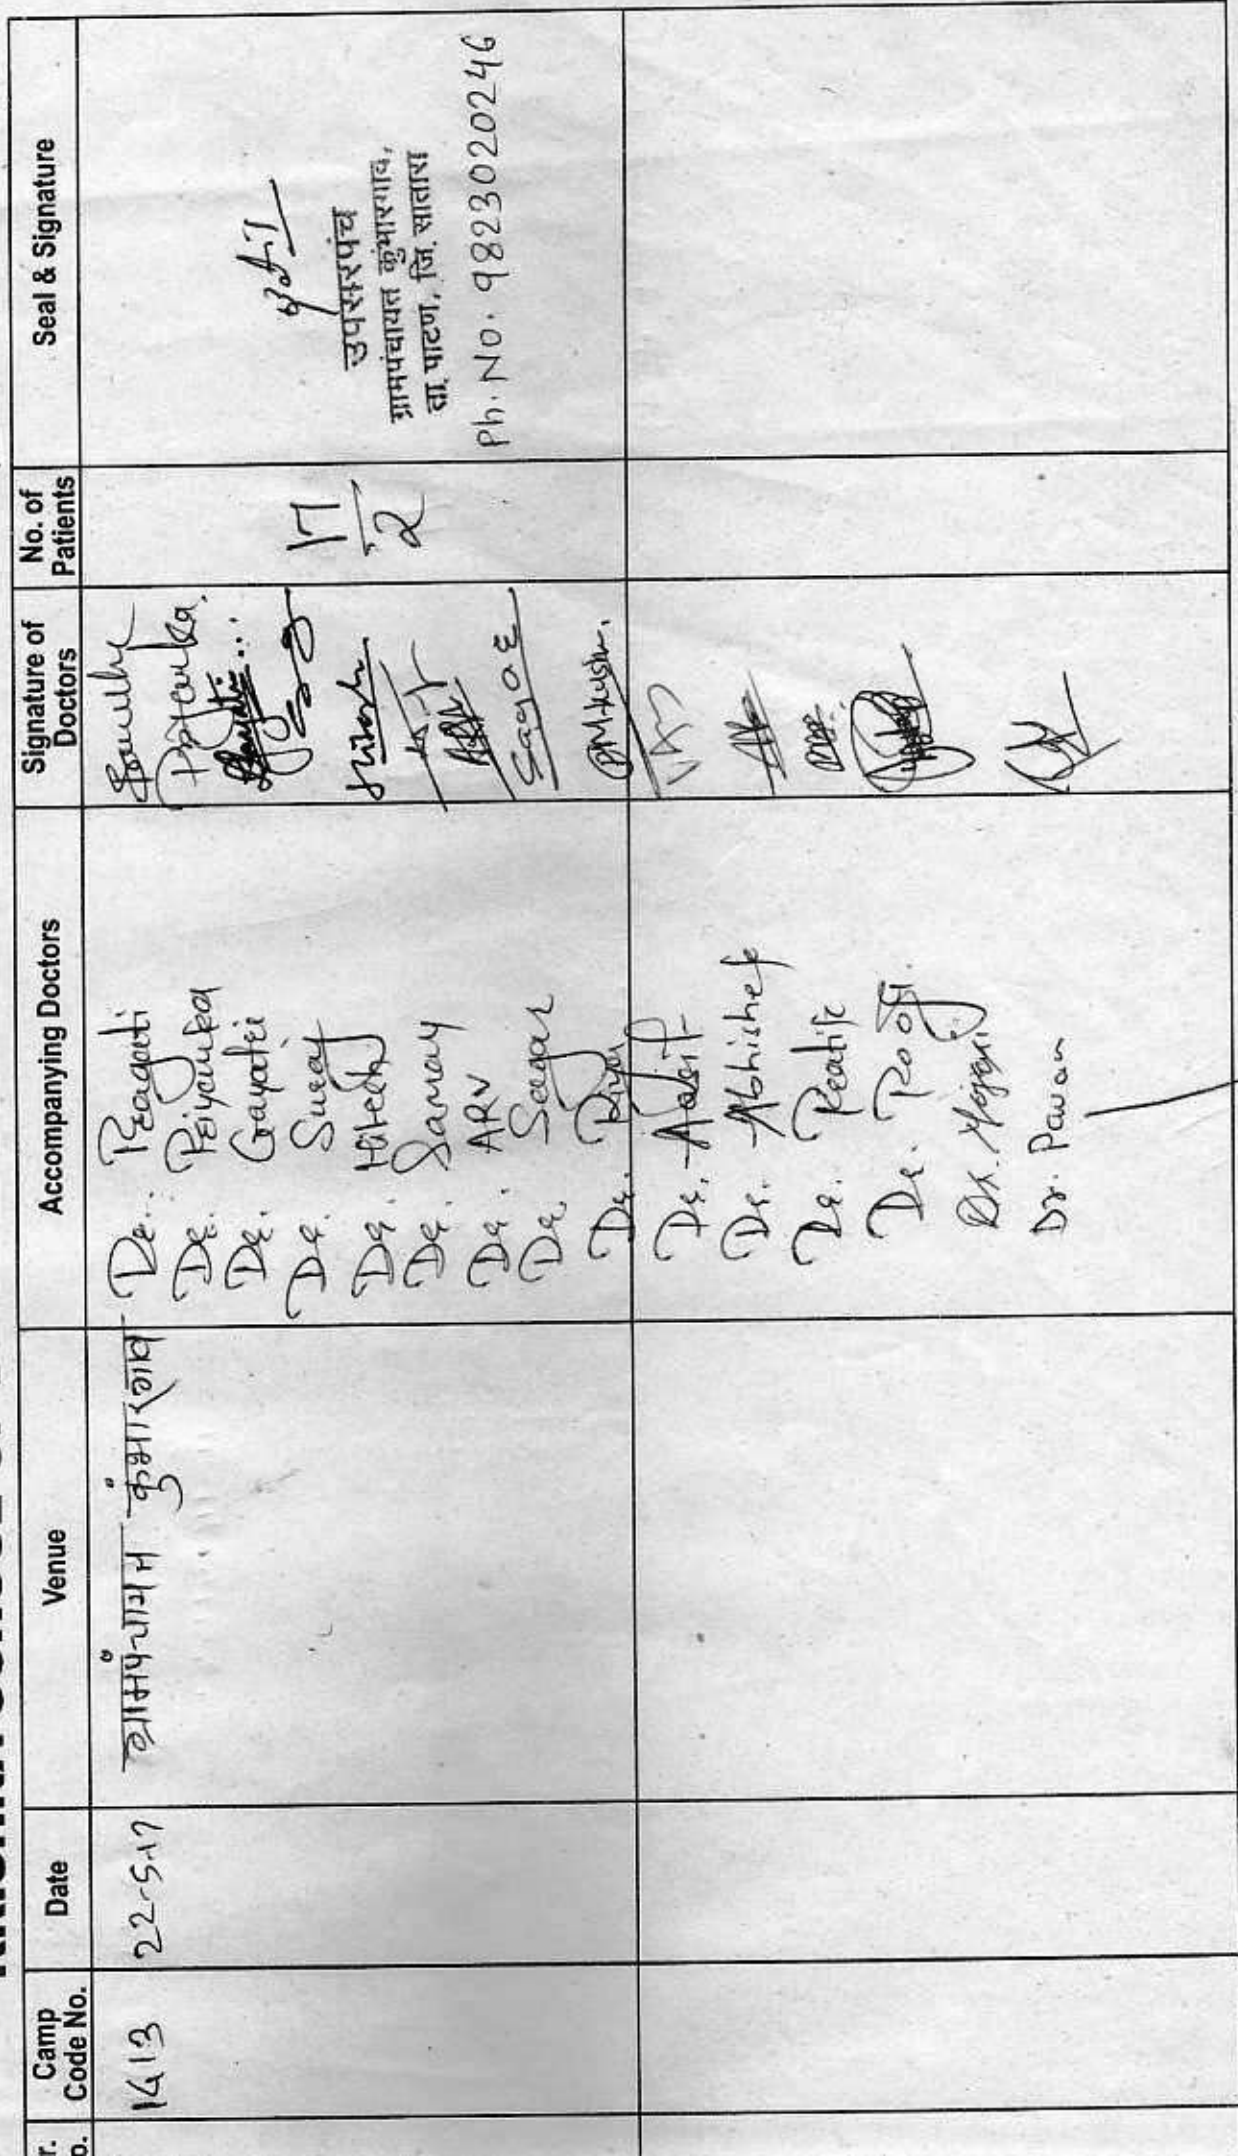 Camp Code No.
Date
Venue
Accompanying Doctors
Signature of Doctors
No. of Patients
Seal & Signature
1413
22-5-17
ग्रामपंचायत कुंभारगाव
Dr. Pragati
Dr. Priyanka
Dr. Gayatri
Dr. Suraj
Dr. Hitesh
Dr. Samay
Dr. ARV
Dr. Sagar
Dr. Riya
Dr. Adsif
Dr. Abhishek
Dr. Pratik
Dr. Pooja
Dr.
Dr. Pavan
Priyanka.
Hitesh
Sagar
17
2
उपसरपंच
ग्रामपंचायत कुंभारगाव,
ता. पाटण, जि. सातारा
Ph. No. 9823020246